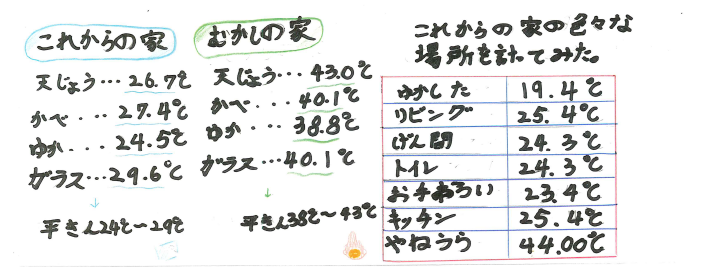 これからの家
天じょう･･･26.7℃
かべ･･･27.4℃
ゆか･･･24.5℃
ガラス･･･29.6℃
↓
平きん24℃～29℃
むかしの家
天じょう･･･43.0℃
かべ･･･40.1℃
ゆか･･･38.8℃
ガラス･･･40.1℃
↓
平きん38℃～43℃
これからの家の色々な
場所を計てみた。
ゆかした 19.4℃
リビング 25.4℃
げん関 24.3℃
トイレ 24.3℃
お手あらい 23.4℃
キッチン 25.4℃
やねうら 44.00℃